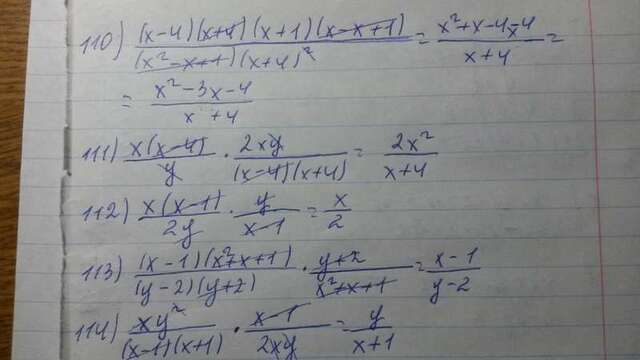 110) (x-4)(x+4)(x+1)(x-x+1) / (x²-x+1)(x+4)² = x²+x-4x-4 / x+4 =
= x²-3x-4 / x+4
111) x(x-4) / y · 2xy / (x-4)(x+4) = 2x² / x+4
112) x(x-1) / 2y · y / x-1 = x / 2
113) (x-1)(x²+x+1) / (y-2)(y+2) · y+2 / x²+x+1 = x-1 / y-2
114) xy² / (x-1)(x+1) · x-1 / 2xy = y / x+1